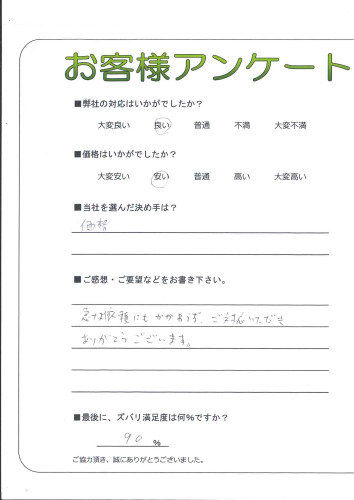 お客様アンケート
■弊社の対応はいかがでしたか？
大変良い 良い 普通 不満 大変不満
■価格はいかがでしたか？
大変安い 安い 普通 高い 大変高い
■当社を選んだ決め手は？
価格
■ご感想・ご要望などをお書き下さい。
急な依頼にもかかわらず、ご対応いただき
ありがとうございます。
■最後に、ズバリ満足度は何%ですか？
90 %
ご協力頂き、誠にありがとうございました。